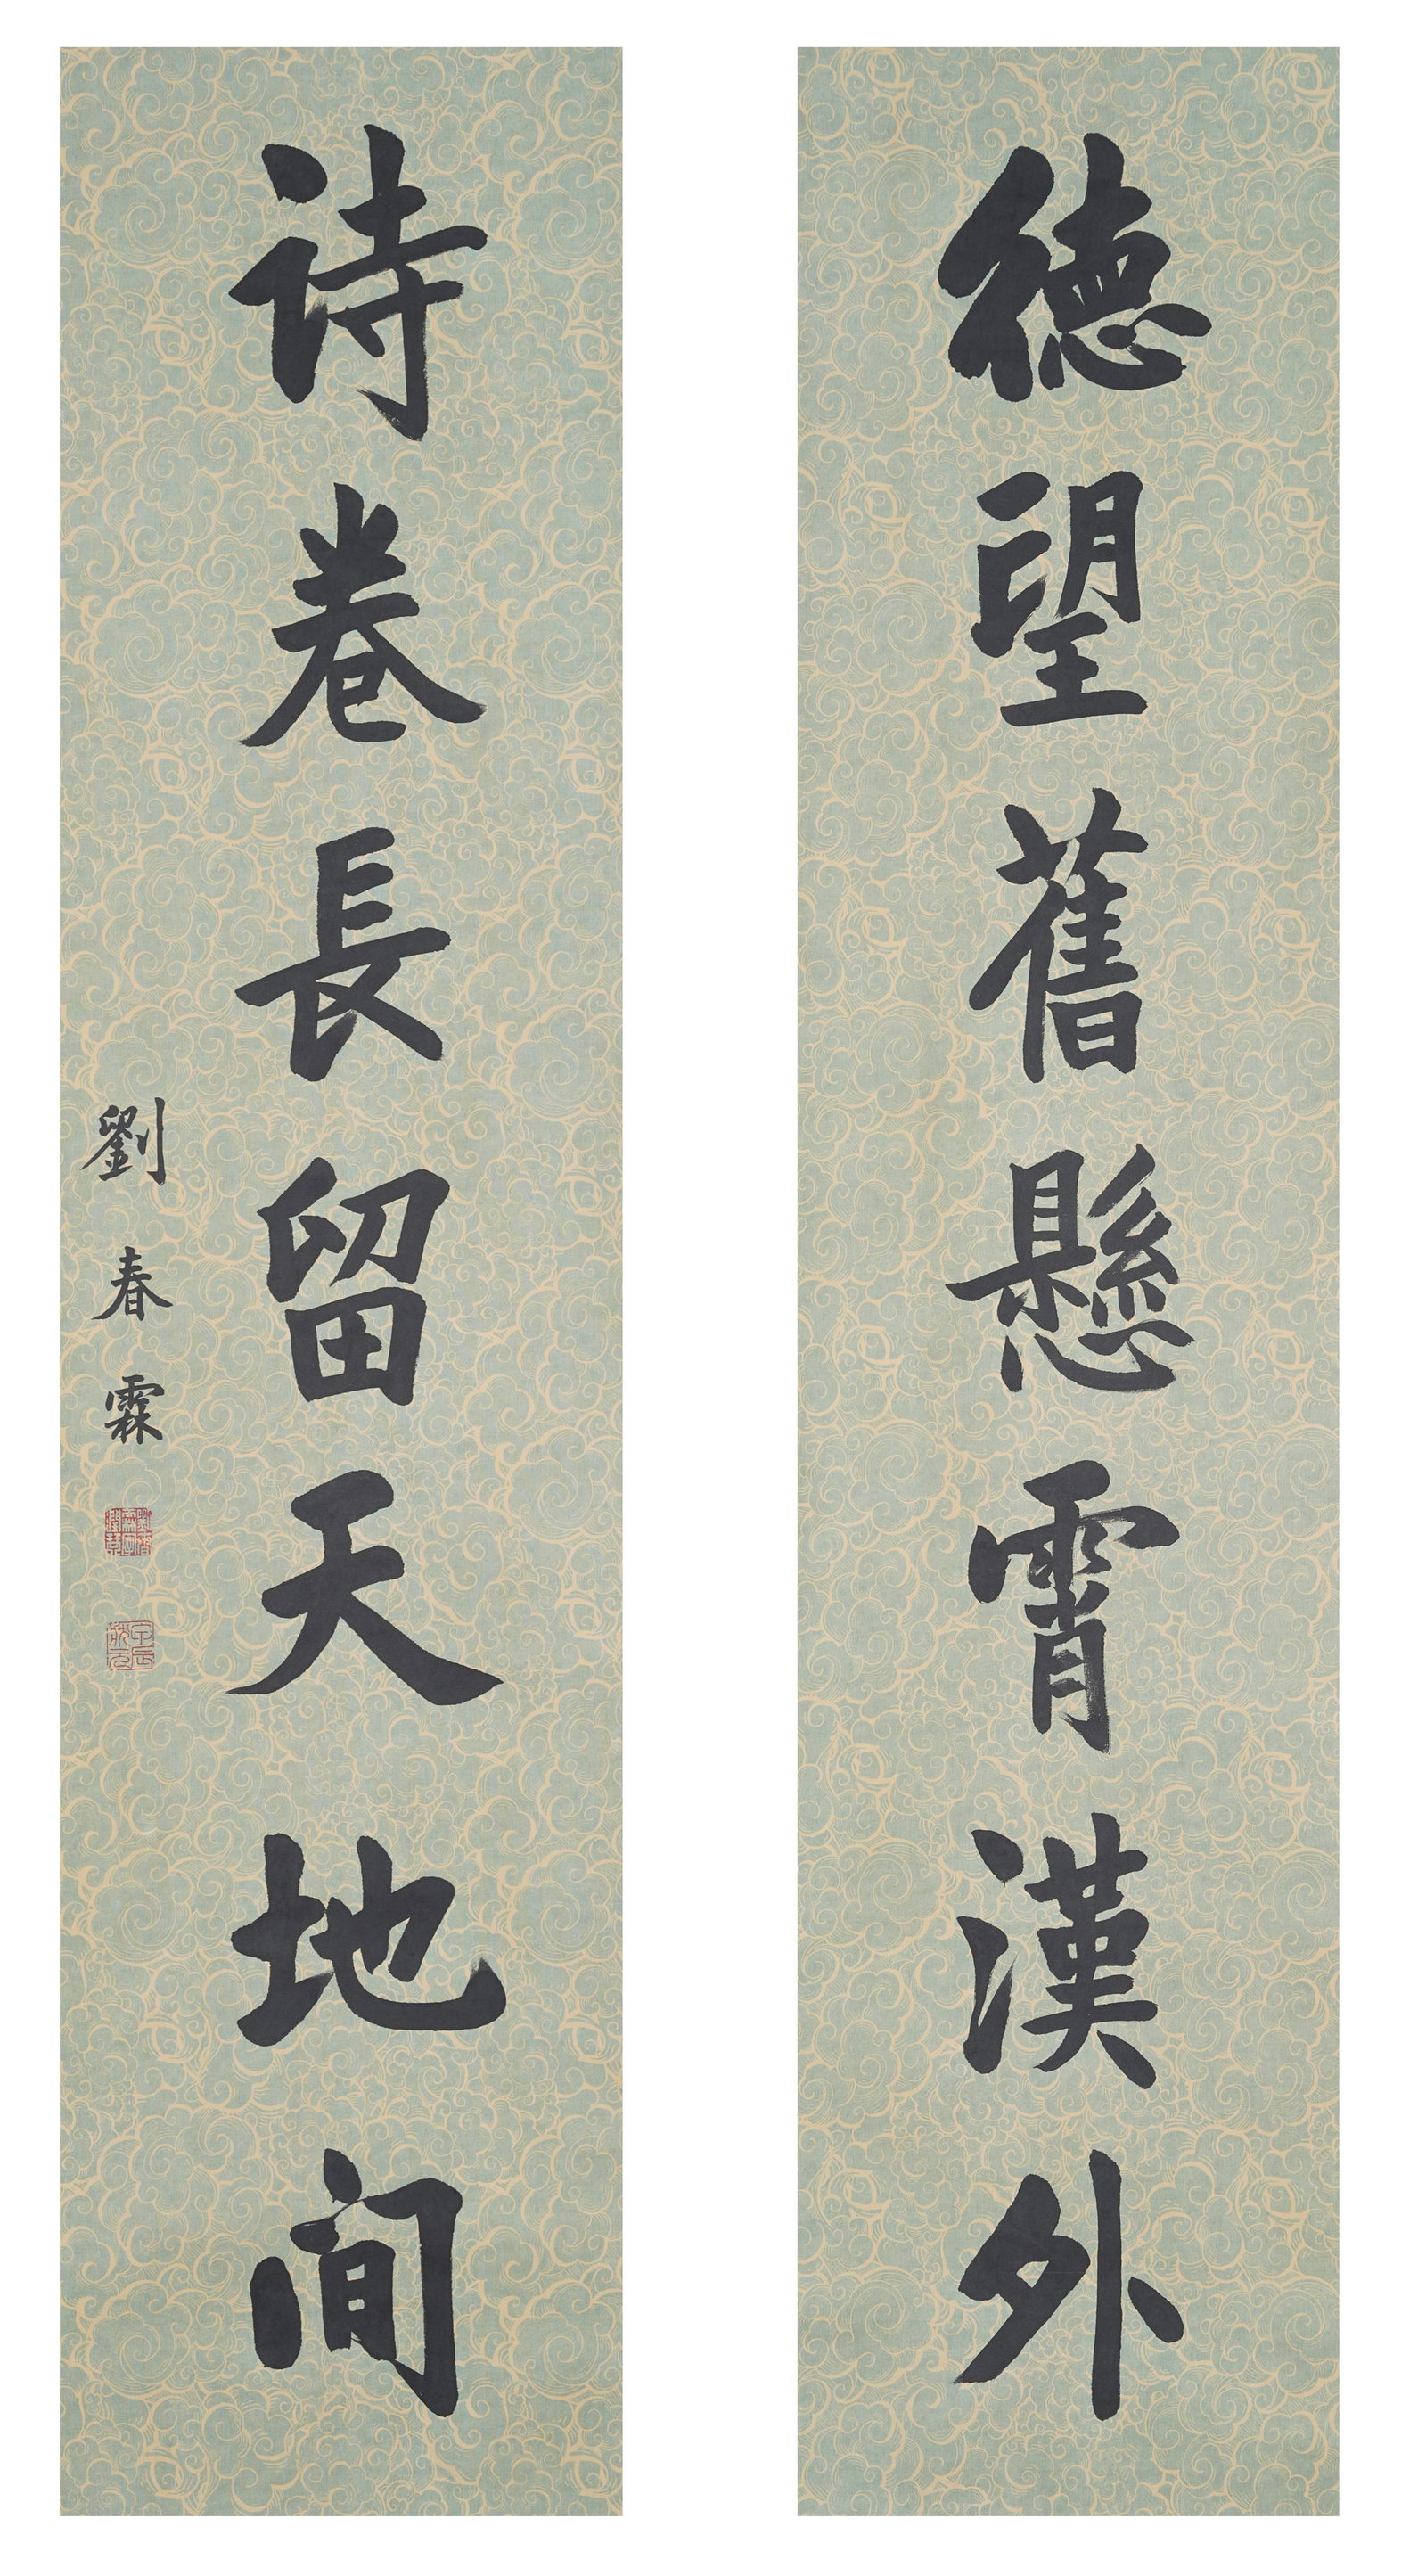 德望舊懸霄漢外
诗卷長留天地间
劉春霖